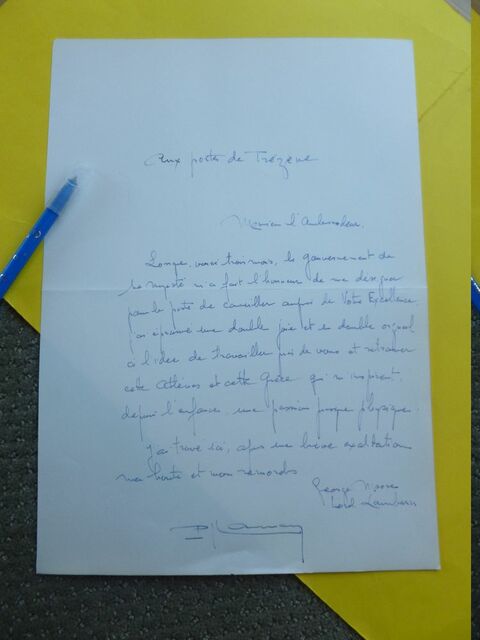 Aux portes de Trézène
Monsieur l'Ambassadeur,
Lorsque, voici trois mois, le gouvernement de
Sa Majesté m'a fait l'honneur de me désigner
pour le poste de conseiller auprès de Votre Excellence
j'ai éprouvé une double joie et un double orgueil
à l'idée de travailler près de vous et retrouver
cette Athènes et cette Grèce qui m'inspirent,
depuis l'enfance, une passion presque physique.
J'ai trouvé ici, après une brève exaltation
ma honte et mon remords
George
Lord